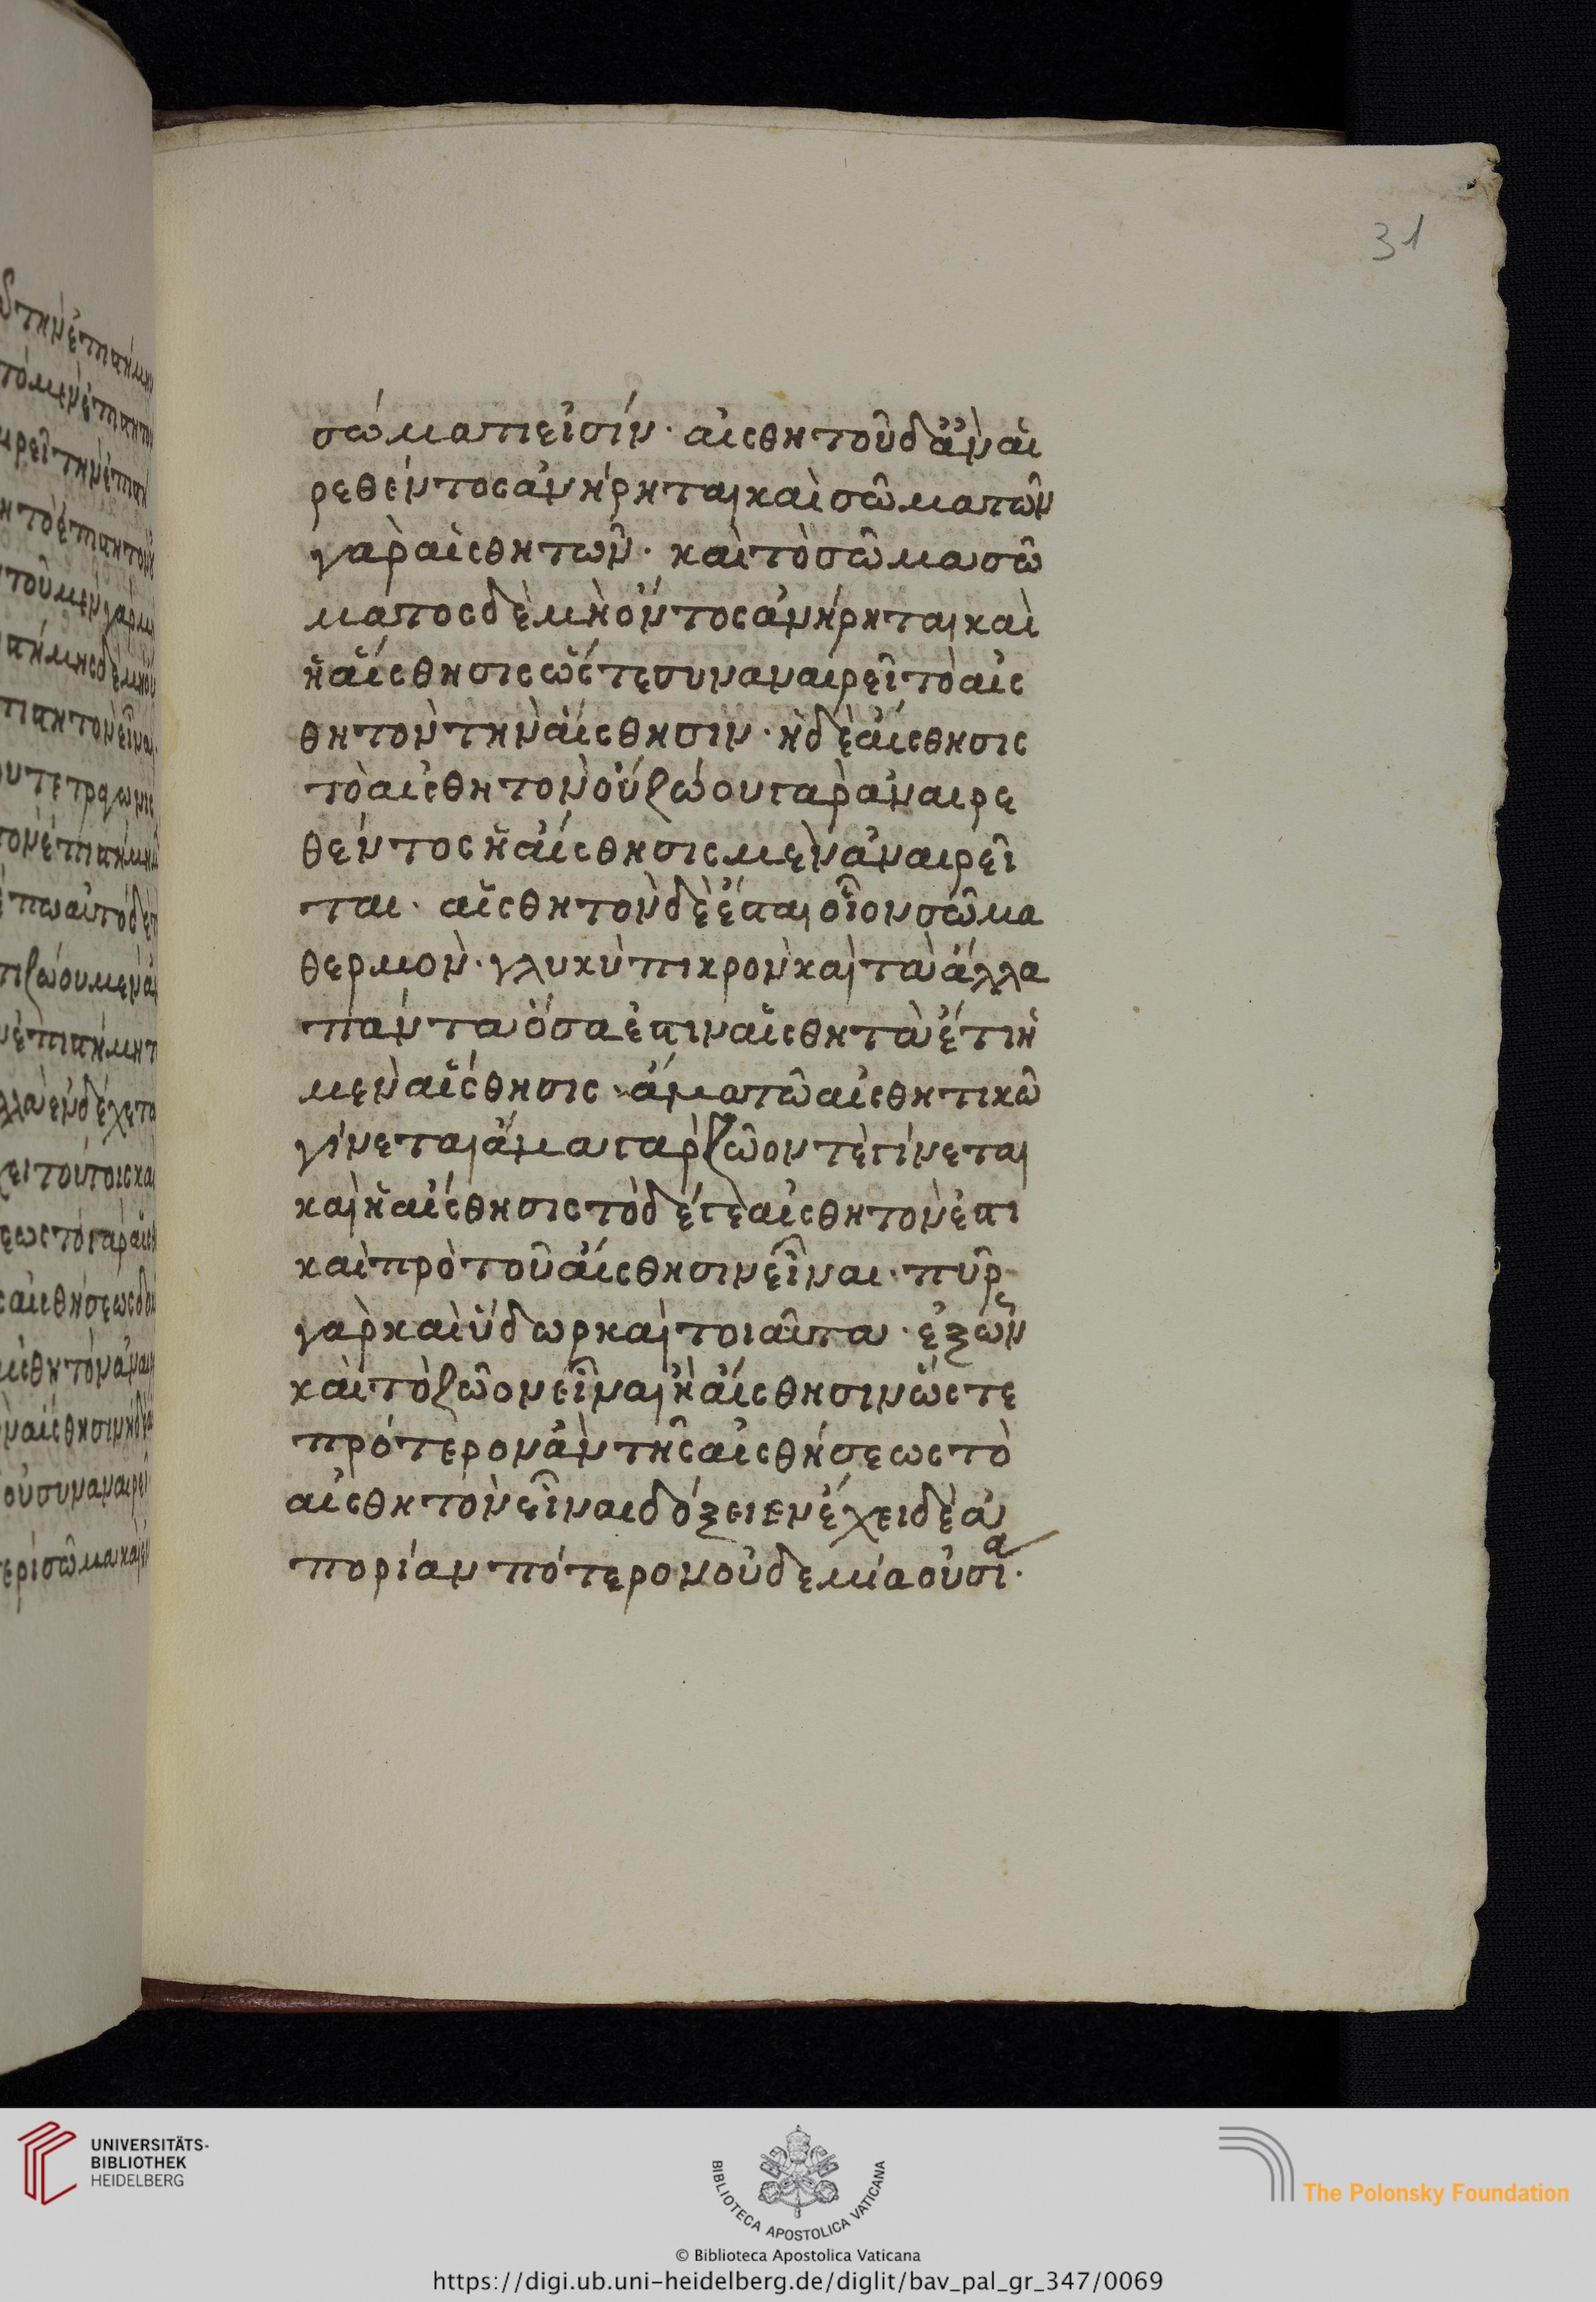 31
σώματι εἰσίν · αἰσθητοῦ δ' ἀναι
ρεθέντος ἀνήρηται καὶ σῶμα τῶν
γὰρ αἰσθητῶν · καὶ τὸ σῶμα σώ
ματος δὲ μὴ ὄντος ἀνήρηται καὶ
ἡ αἴσθησις ὥστε συναναιρεῖ τὸ αἰσ
θητὸν τὴν αἴσθησιν · ἡ δὲ αἴσθησις
τὸ αἰσθητὸν οὔ ζώου γὰρ ἀναιρε
θέντος ἡ αἴσθησις μὲν ἀναιρεῖ
ται · αἰσθητὸν δὲ ἔσται οἷον σῶμα
θερμὸν · γλυκὺ πικρὸν καὶ τὰ ἄλλα
πάντα ὅσα ἐστιν αἰσθητὰ ἔτι ἡ
μὲν αἴσθησις · ἅμα τῶ αἰσθητικῶ
γίνεται ἅμα γὰρ ζῶόν τε γίνεται
καὶ ἡ αἴσθησις τὸ δέ γε αἰσθητὸν ἐστι
καὶ πρὸ τοῦ αἴσθησιν εἶναι · πῦρ
γὰρ καὶ ὕδωρ καὶ τοιαῦτα · ἐξ ὧν
καὶ τὸ ζῶον εἶναι ἢ αἴσθησιν ὥστε
πρότερον ἂν τῆς αἰσθήσεως τὸ
αἰσθητὸν εἶναι δόξειεν ἔχει δὲ ἀ
πορίαν πότερον οὐδεμία οὐσία ·
UNIVERSITÄTS-
BIBLIOTHEK
HEIDELBERG
BIBLIOTECA APOSTOLICA VATICANA
The Polonsky Foundation
© Biblioteca Apostolica Vaticana
https://digi.ub.uni-heidelberg.de/diglit/bav_pal_gr_347/0069